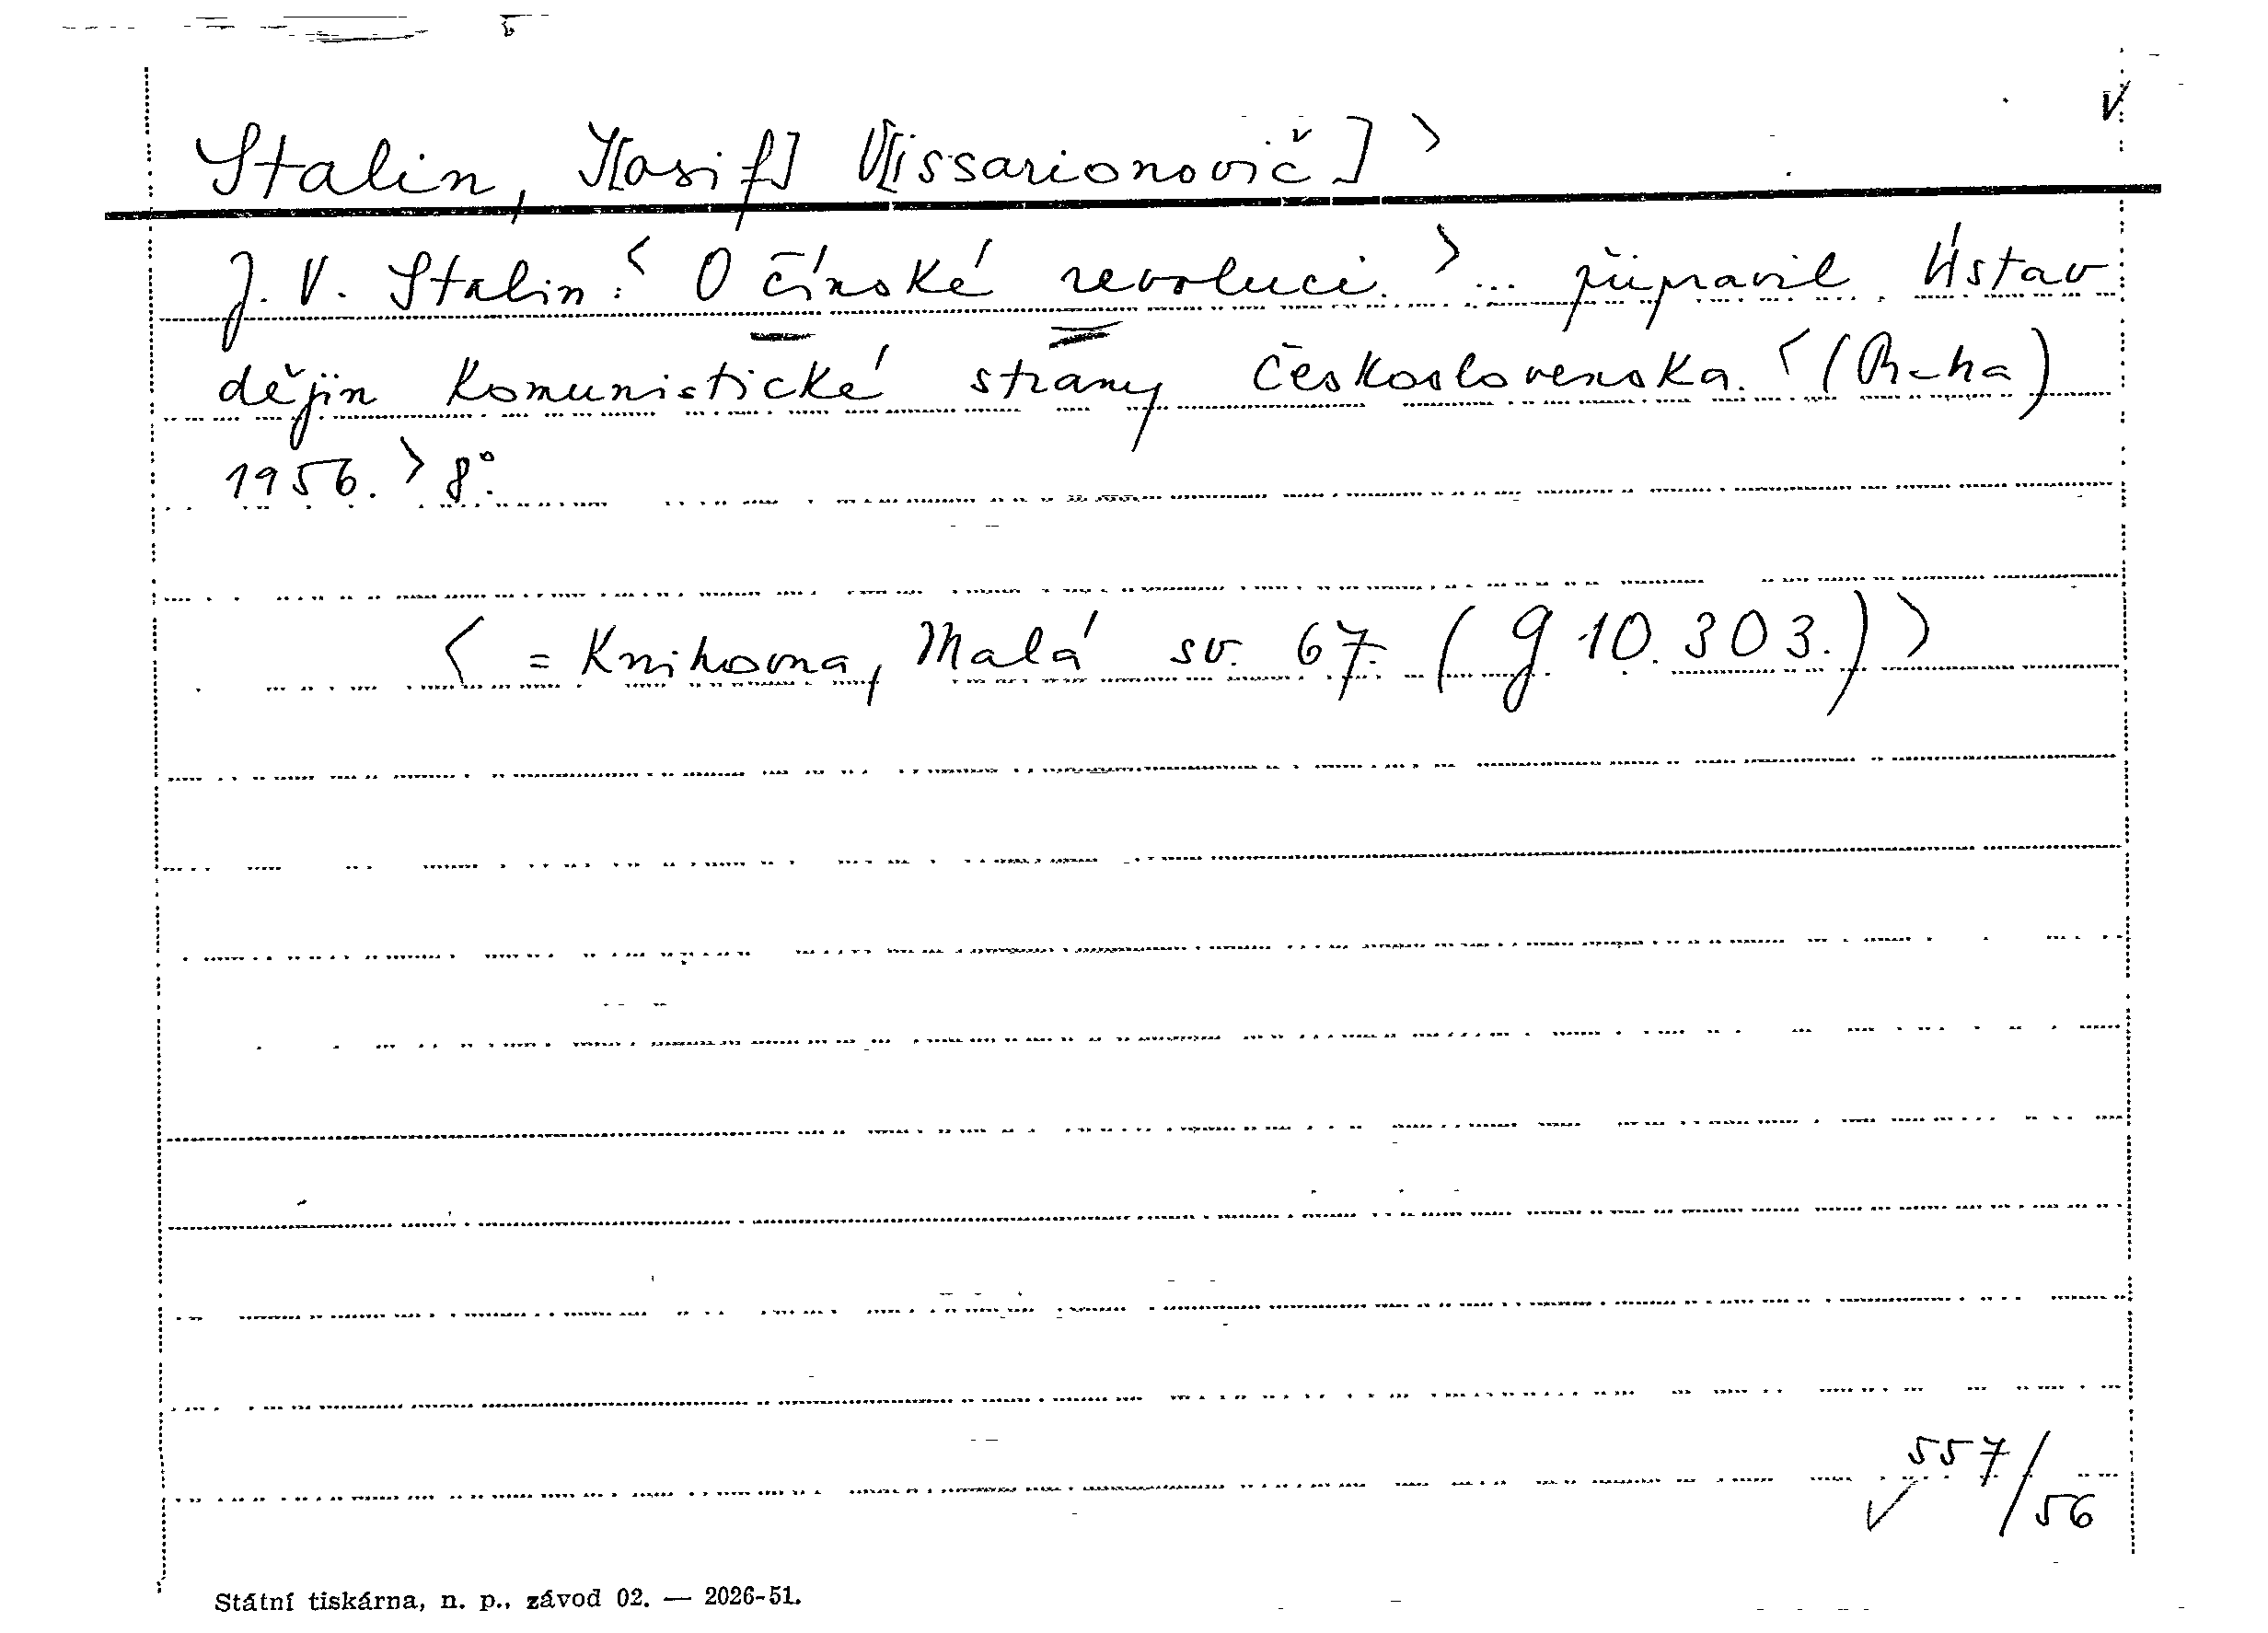 Stalin, J[osif] V[issarionovič] >
J. V. Stalin: < O čínské revoluci. > ... připravil Ústav
dějin Komunistické strany Československa. < (Praha)
1956. > 8°.
< = Knihovna, Malá sv. 67. (g 10.303.) >
557/56
Státní tiskárna, n. p., závod 02. — 2026-51.